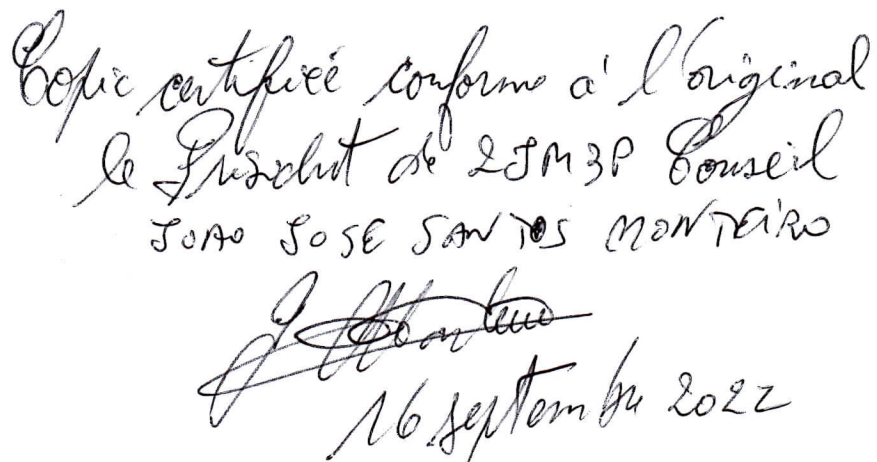 Copie certifiée conforme à l'original
le Président de 2JM3P Conseil
JOAO JOSE SANTOS MONTEIRO
J Monteiro
16 septembre 2022